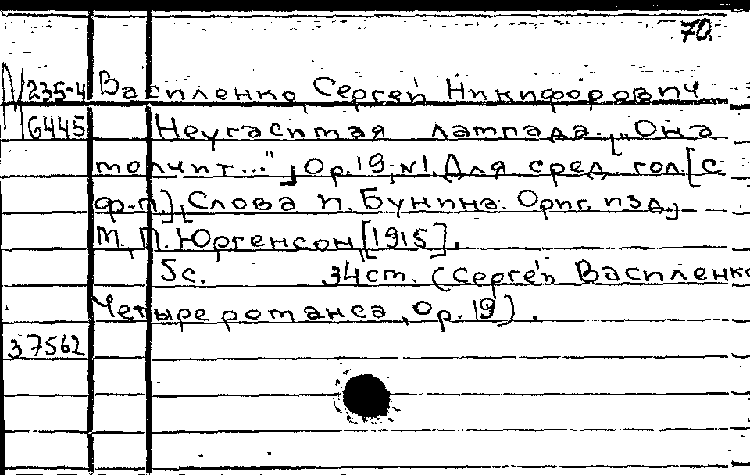 70.
М 235-4 Василенко, Сергей Никифорович
6445 Неугасимая лампада. ["Она
молчит..."], Ор.19, №1. Для сред. гол. [с
ф-п.], Слова И. Бунина. Ориг. изд.
М., П. Юргенсон, [1915].
5с. 34см. (Сергей Василенко
Четыре романса, Ор. 19).
37562